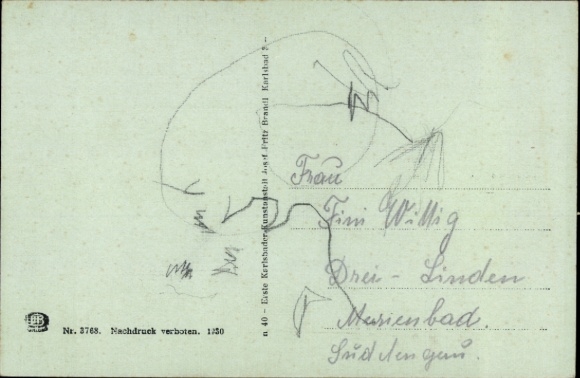 n. 40 — Erste Karlsbader Kunstanstalt Josef Fritz Brandl Karlsbad
Frau
Fini Willig
Drei - Linden
Marienbad.
Sudetengau.
Nr. 3768. Nachdruck verboten. 1930